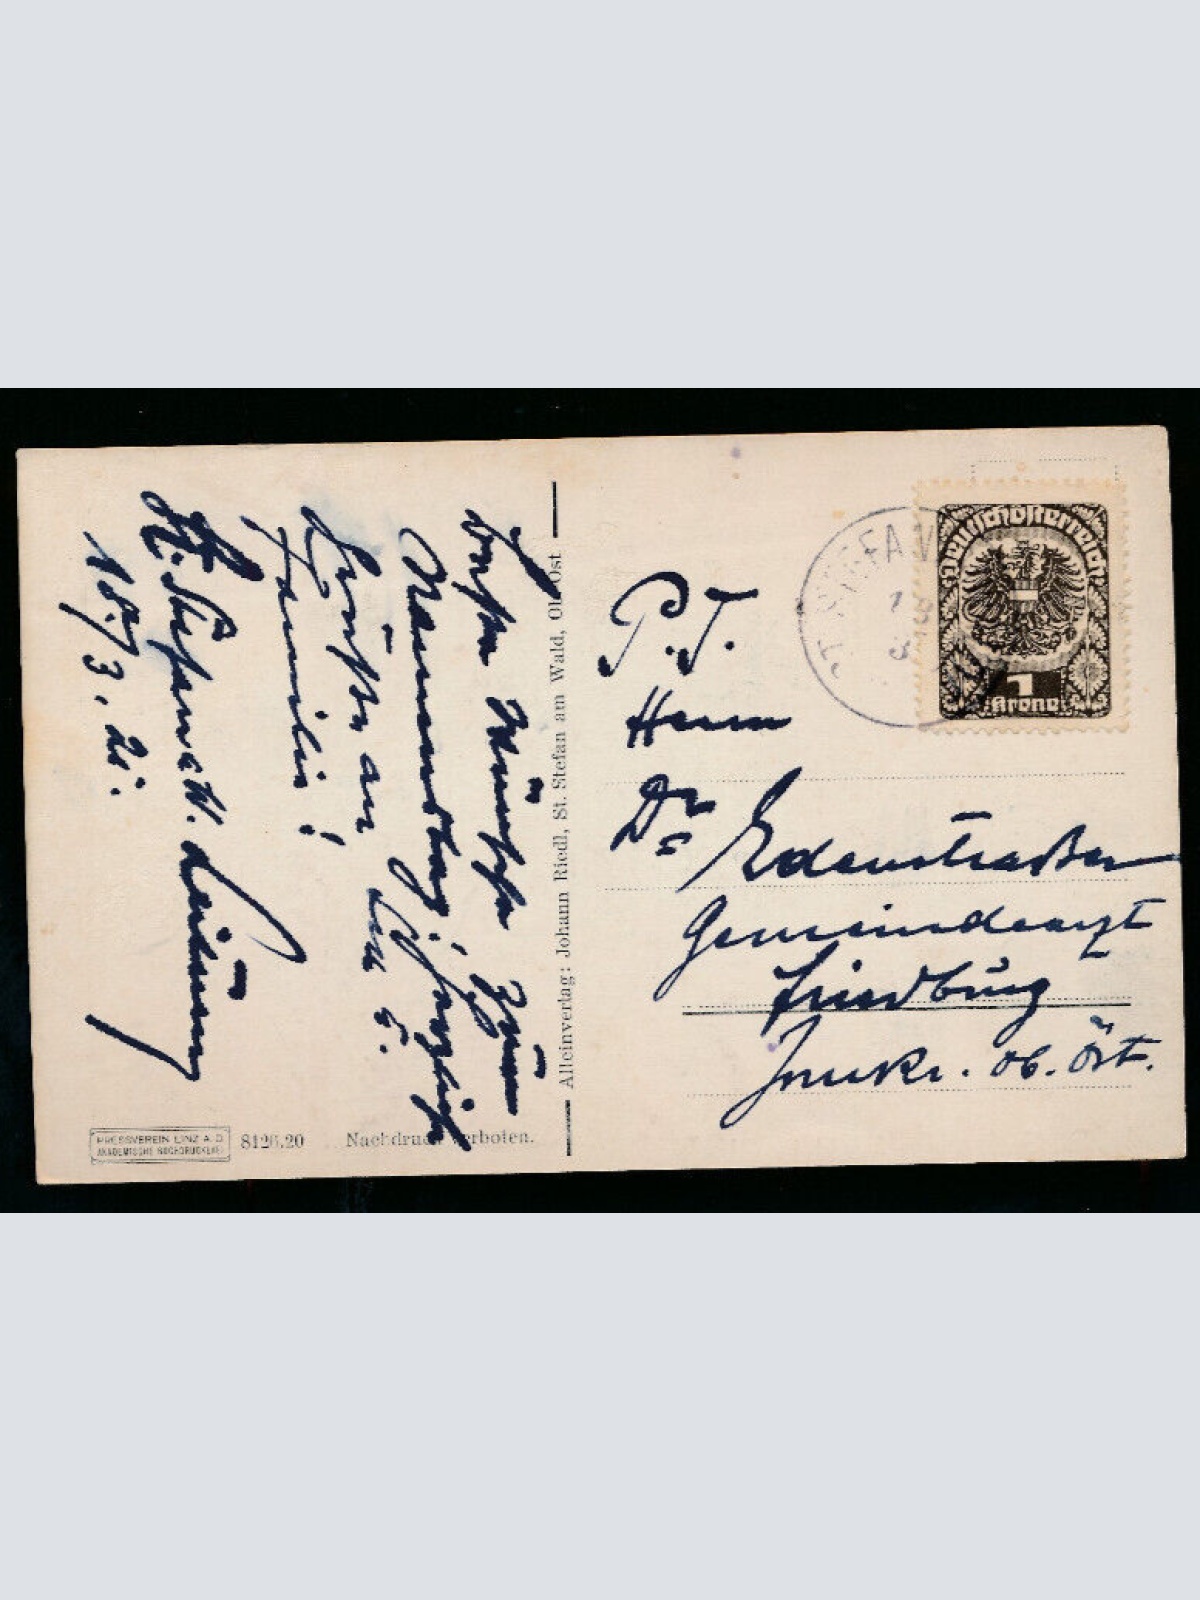 Besten Wünsche zum
Namenstag, herzlich
Grüße an Sie u.
Familie!
St. Stefan a/W.
18./3. 21.
PRESSVEREIN LINZ A. D.
AKADEMISCHE BUCHDRUCKEREI
8126.20
Nachdruck verboten.
Alleinverlag: Johann Riedl, St. Stefan am Wald, Ob.-Öst
ST. STEFAN
Deutschösterreich
1
Krone
P. T.
Herrn
Dr
Edenstraßer
Gemeindearzt
Friedburg
Innkr. Ob. Öst.